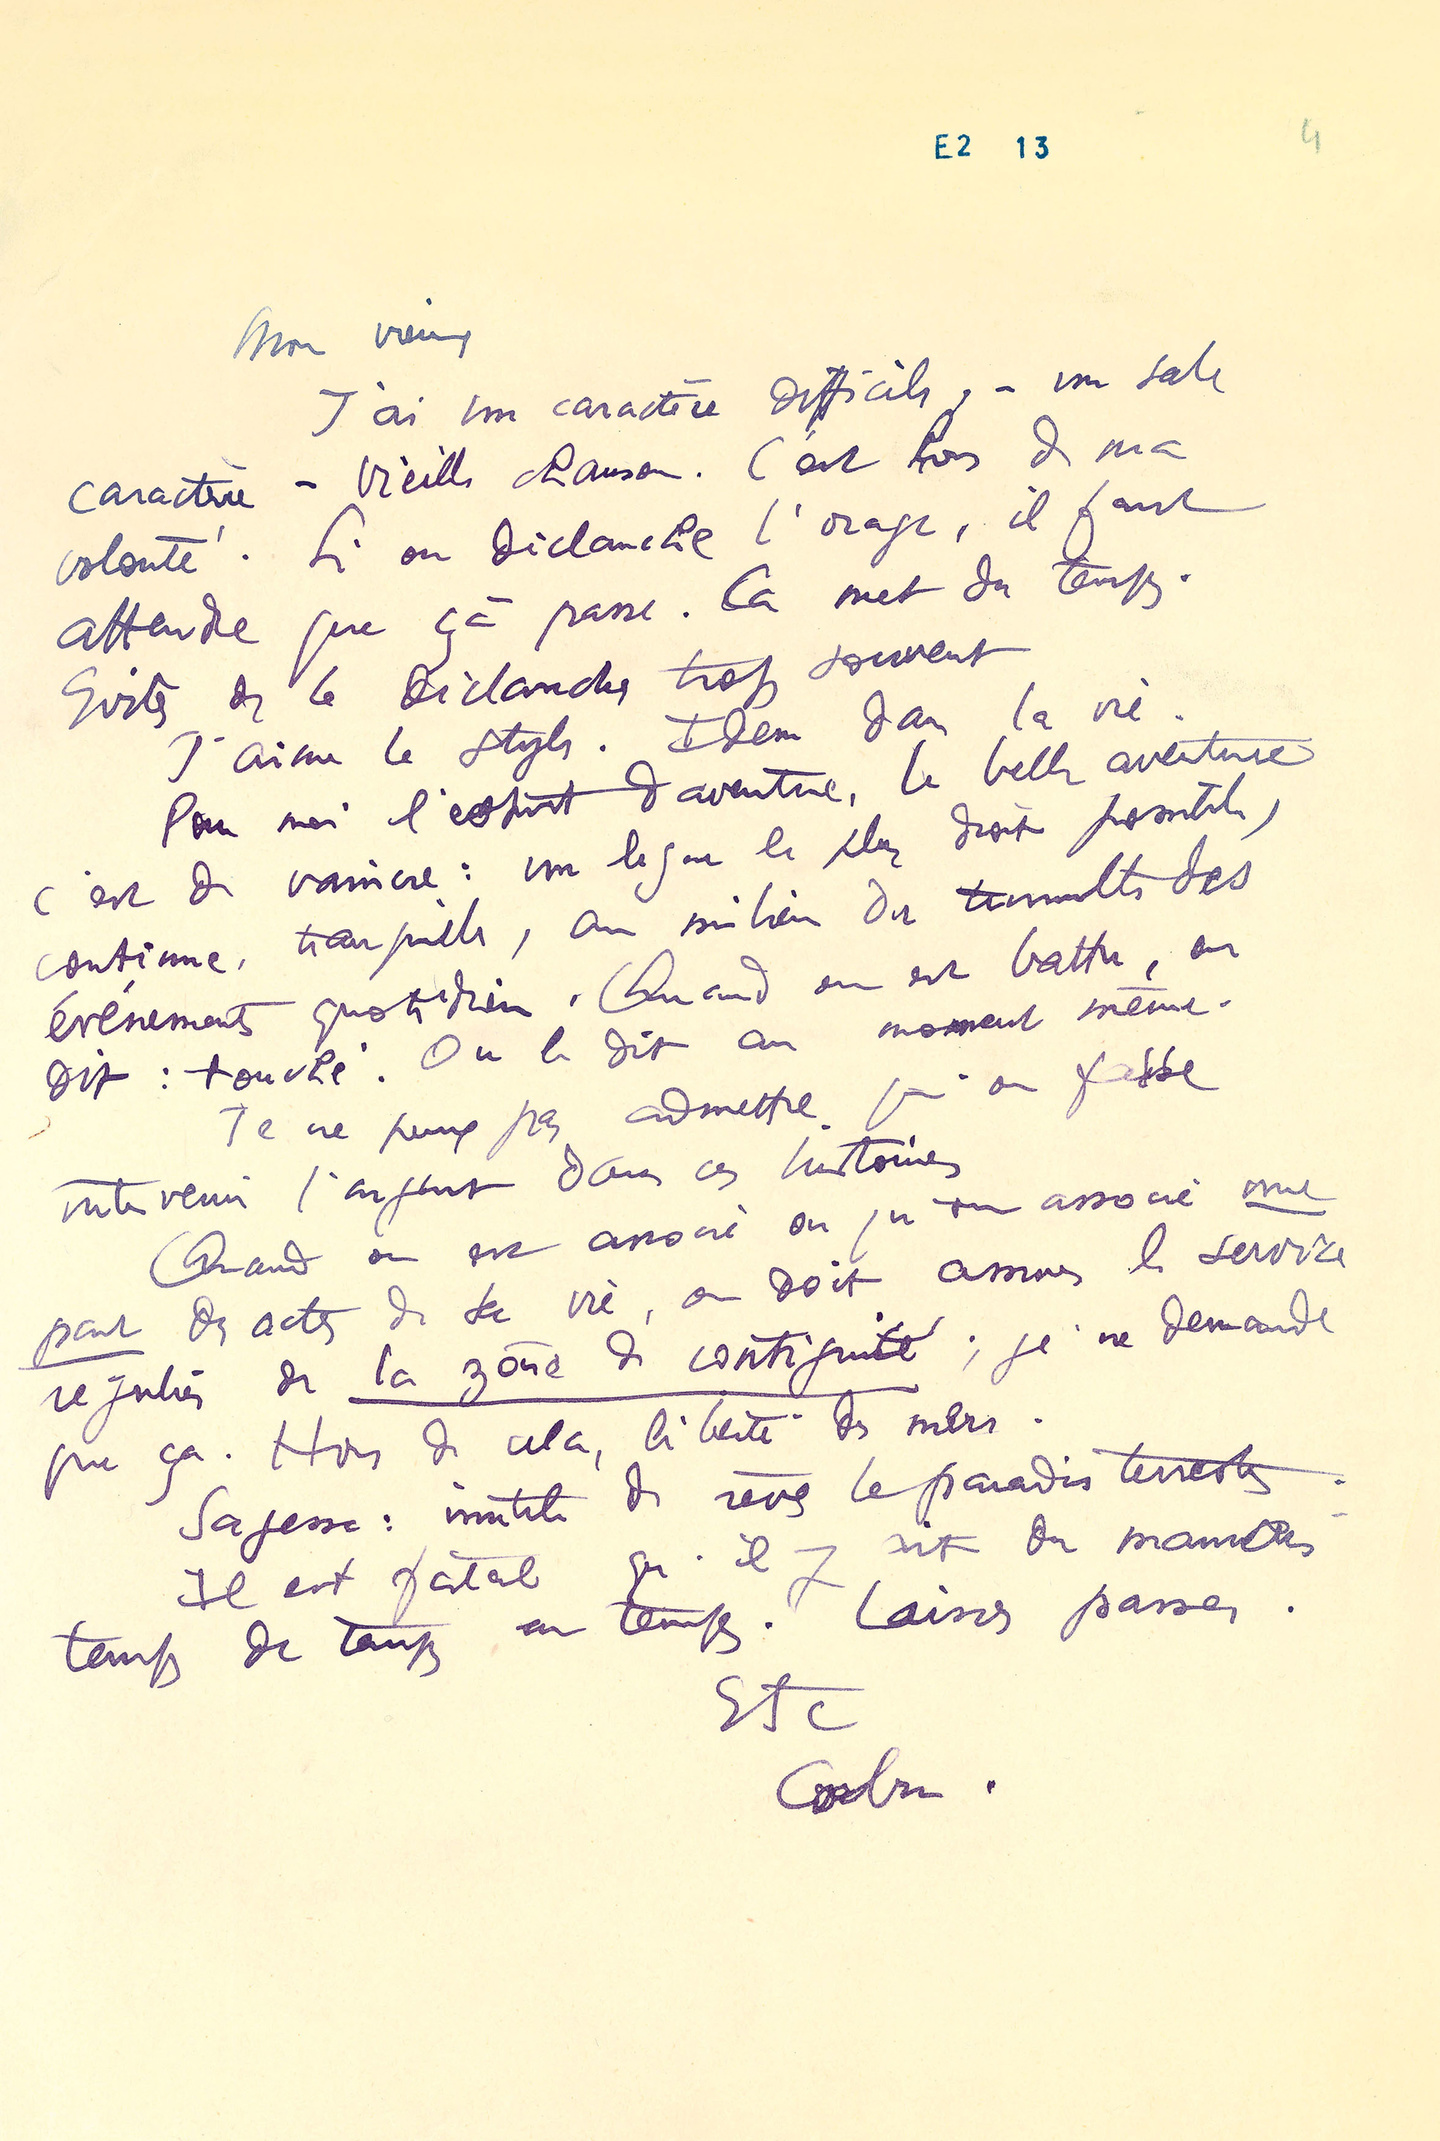 E2 13
4
Mon vieux
J'ai un caractère difficile, – un sale
caractère – vieille chanson. C'est hors de ma
volonté. Si on déclanche l'orage, il faut
attendre que çà passe. Ca met du temps.
Evites de le déclancher trop souvent
J'aime le style. Idem dans la vie.
Pour moi l'esprit d'aventure, la belle aventure
c'est de vaincre : une ligne la plus droite possible,
continue, tranquille, au milieu du tumulte des
événements quotidiens. Quand on est battu, on
dit : touché. On le dit au moment même.
Je ne peux pas admettre qu'on fasse
intervenir l'argent dans ces histoires
Quand on est associé ou qu'on associe une
part des actes de sa vie, on doit assurer le service
régulier de la zône de contiguité ; je ne demande
que ça. Hors de cela, liberté des mers.
Sagesse : inutile de rêver le paradis terrestre.
Il est fatal qu'il y ait du mauvais
temps de temps en temps. Laisser passer.
Etc
Corbu.